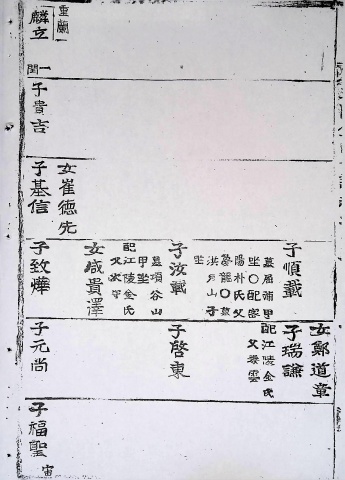 重蘭
麟立
一
閏
子貴吉
女崔德先
子基信
子順載
墓眉浦甲
坐〇配密
陽朴氏父
夢龍〇墓
洪戶山子
坐
子汝載
墓項谷山
甲坐
配江陵金氏
父
女咸貴澤
子致燁
女鄭道章
子瑞謙
配江陵金氏
父
雲
子啓東
子元尚
子福聖
宙